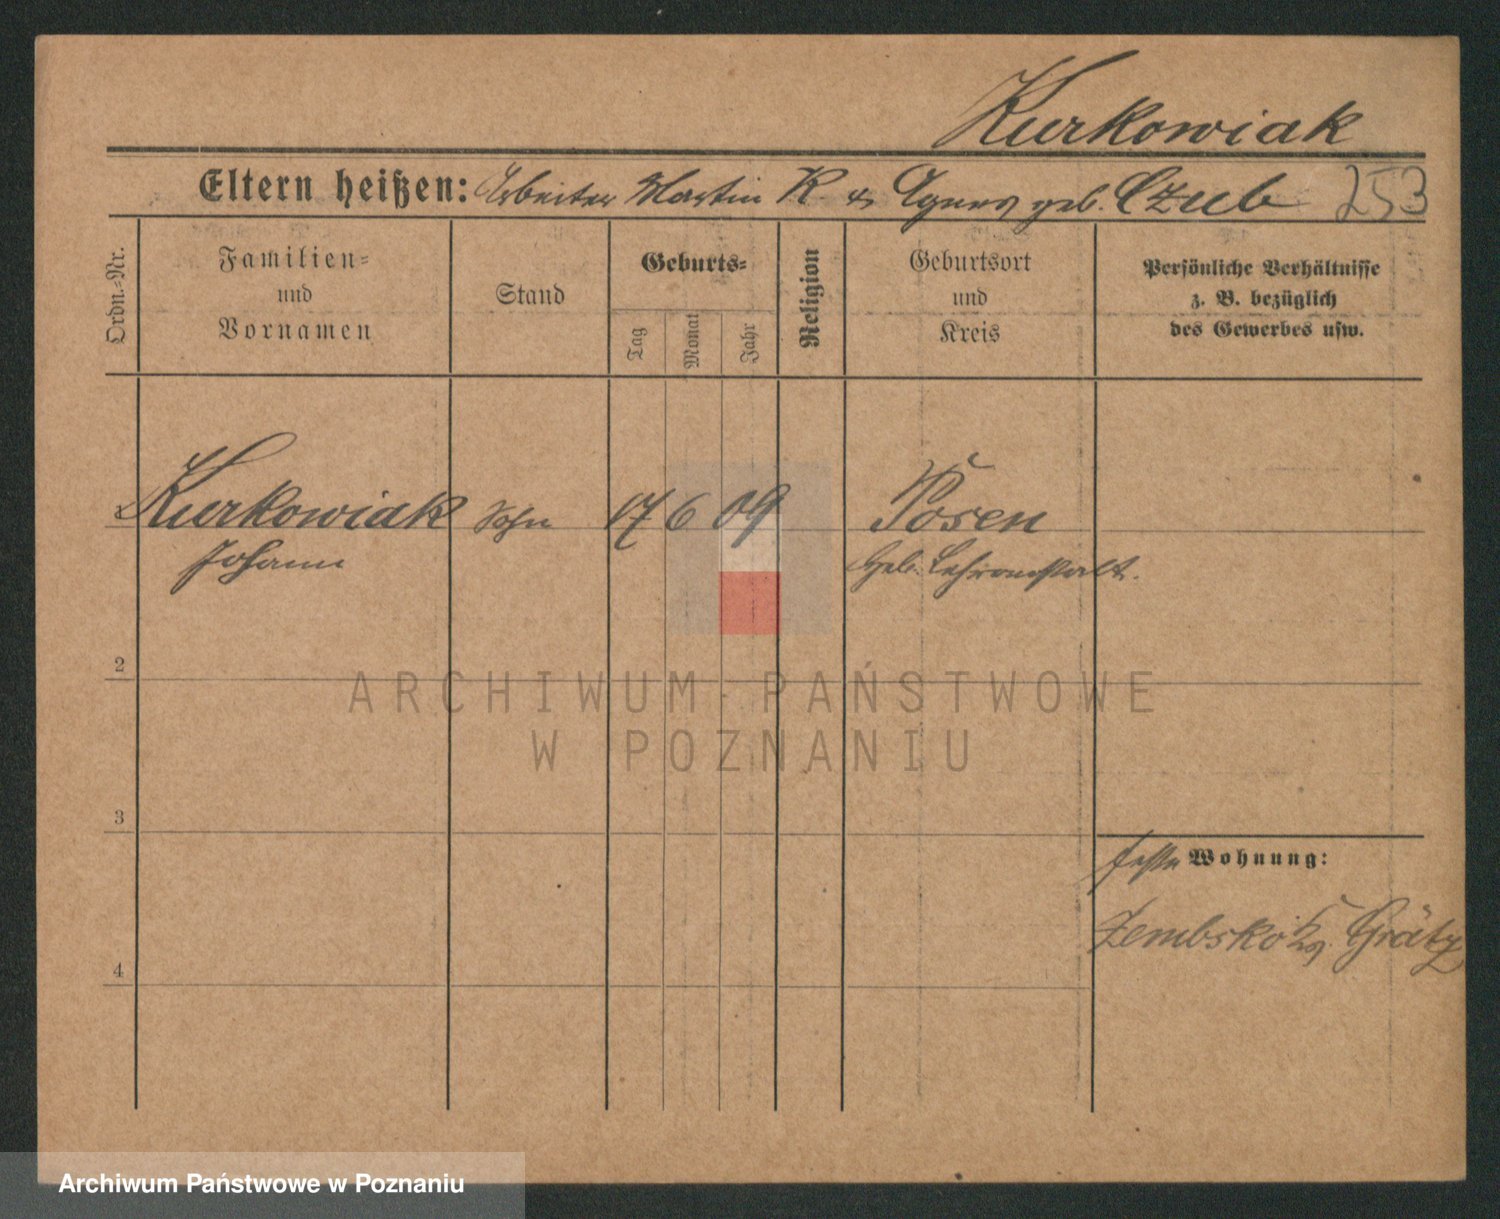 Kurkowiak
Eltern heißen: Arbeiter Martin K. & Agnes geb. Czub 253
Ordn.-Nr.
Familien- und Vornamen
Stand
Geburts-
Tag
Monat
Jahr
Religion
Geburtsort und Kreis
Persönliche Verhältnisse
z. B. bezüglich
des Gewerbes usw.
Kurkowiak Sohn 17 6 09 Posen
Johann Heb. Lehranstalt.
2
ARCHIWUM PAŃSTWOWE
W POZNANIU
3
feste Wohnung:
Zembsko Kr. Grätz
4
Archiwum Państwowe w Poznaniu